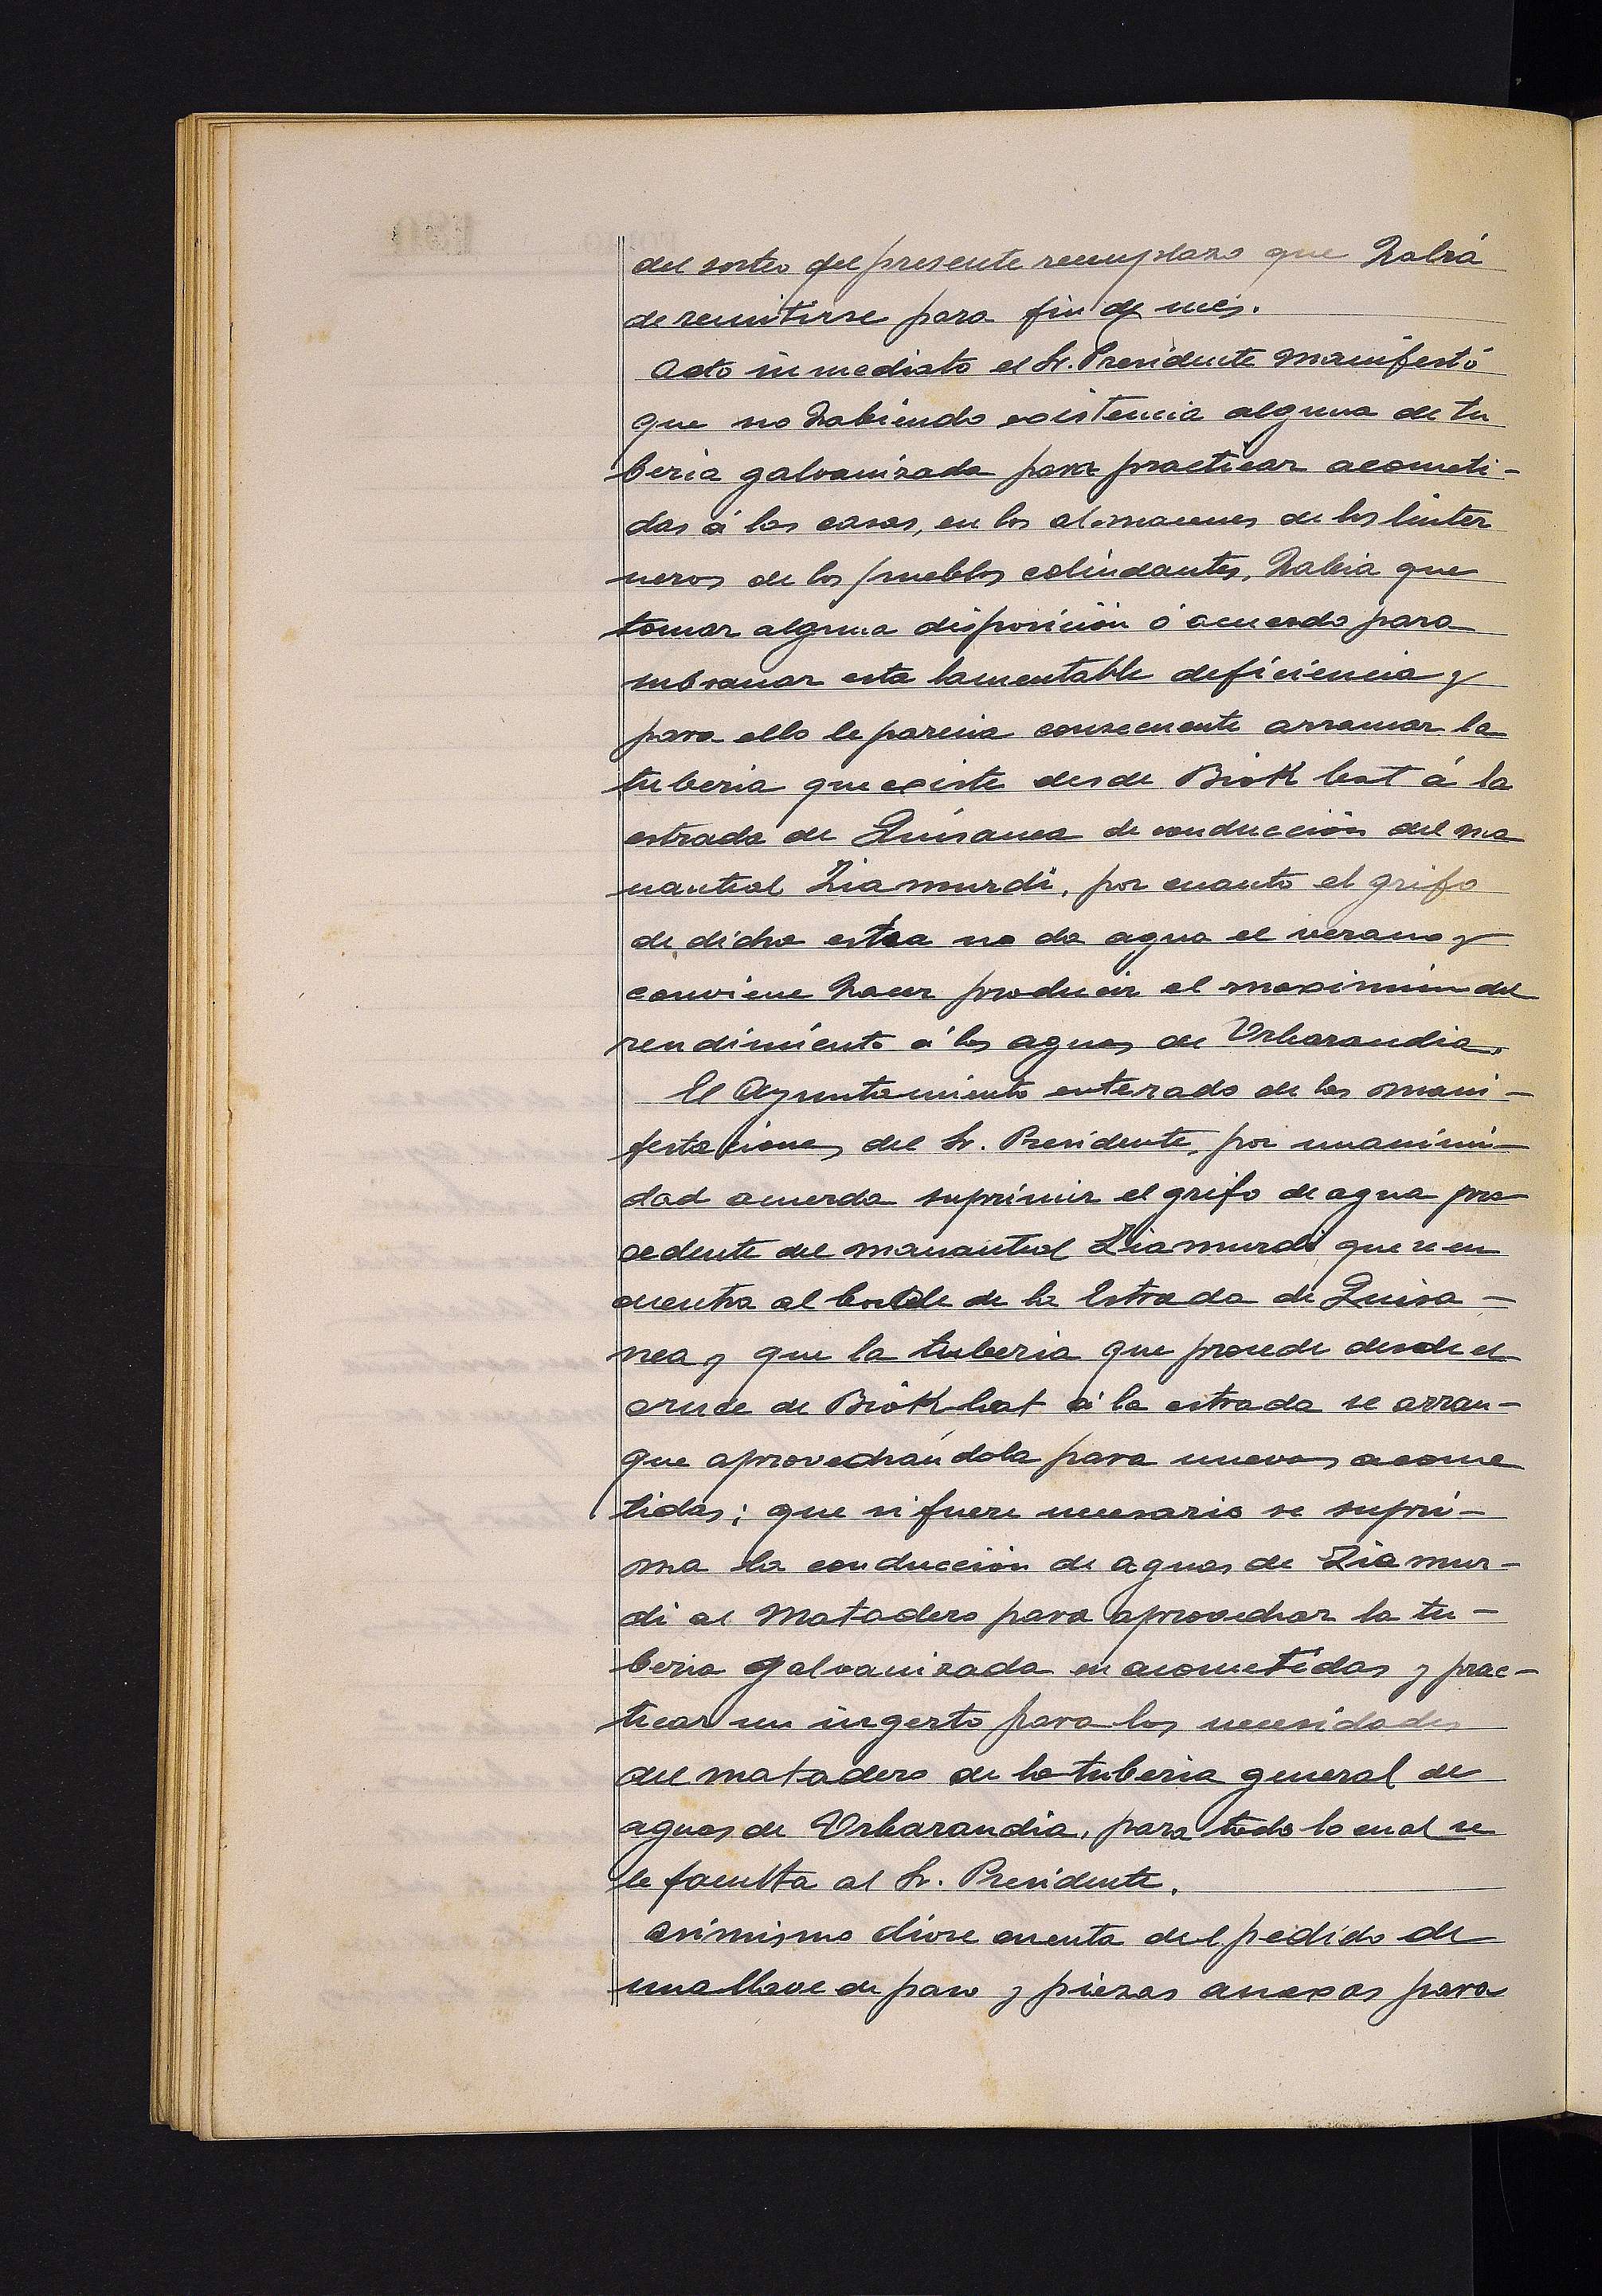 del sorteo del presente reemplazo que habrá
de remitirse para fin de mes.
Acto inmediato el Sr. Presidente manifestó
que no habiendo existencia alguna de tu
beria galvanizada para practicar acometi-
das á las casas, en los almacenes de los linter
neros de los pueblos colindantes, habia que
tomar alguna disposición ó acuerdo para
subsanar esta lamentable deficiencia y
para ello le parecia consecuente arrancar la
tuberia que existe desde Biok beat á la
estrada de Guisanea de conducción del ma
nantial Ziamurdi, por cuanto el grifo
de dicha estra no da agua el verano y
conviene hacer producir el maximun del
rendimiento á las aguas de Urbarandia.
El Ayuntamiento enterado de las mani-
festaciones del Sr. Presidente, por unanimi-
dad acuerda suprimir el grifo de agua pro
cedente del manantial Ziamurdi que se en
cuentra al borde de la Estrada de Guisa-
nea y que la tuberia que procede desde el
cruce de Biok beat á la estrada se arran-
que aprovechándola para nuevas acome
tidas; que si fuere necesario se supri-
ma la conducción de aguas de Ziamur-
di al Matadero para aprovechar la tu-
beria galvanizada en acometidas y prac-
ticar un ingerto para las necesidades
del matadero de la tuberia general de
aguas de Urbarandia, para todo lo cual se
le faculta al Sr. Presidente.
Asimismo diose cuenta del pedido de
una llave de paso y piezas anexas para